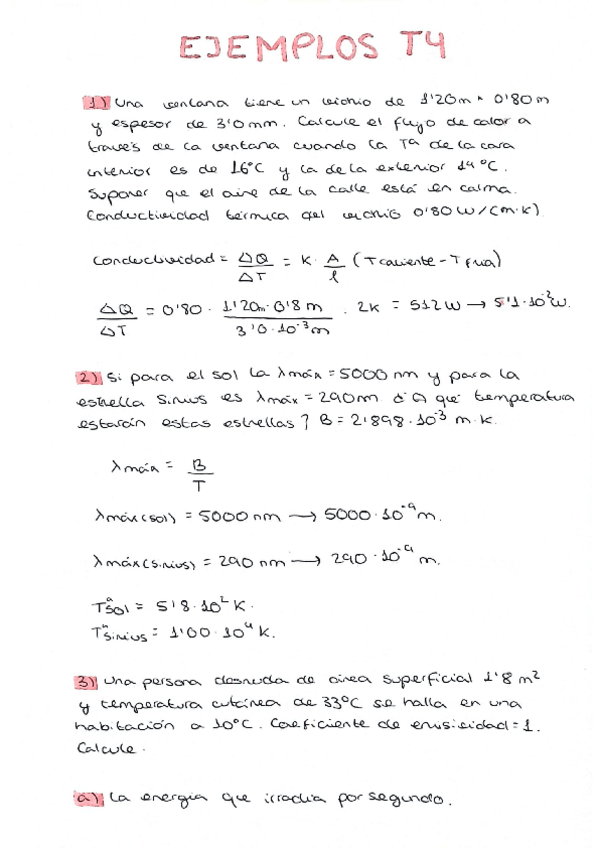 EJEMPLOS T4
1) Una ventana tiene un vidrio de 1'20m * 0'80m
y espesor de 3'0mm. Calcule el flujo de calor a
través de la ventana cuando la Tª de la cara
interior es de 16ºC y la de la exterior 14ºC.
Suponer que el aire de la calle está en calma.
Conductividad térmica del vidrio 0'80 W/(m·K)
Conductividad = ΔQ/ΔT = K · A/l (Tcaliente - Tfria)
ΔQ/ΔT = 0'80 · 1'20m·0'8m/3'0·10⁻³m · 2K = 512W → 5'1·10⁻²W.
2) Si para el sol la λmáx = 5000 nm y para la
estrella Sirius es λmáx = 290m ¿A qué temperatura
estarán estas estrellas? B = 2'898·10⁻³ m·K.
λmáx = B/T
λmáx(sol) = 5000nm → 5000·10⁻⁹m.
λmáx(sirius) = 290nm → 290·10⁻⁹ m.
Tªsol = 5'8·10² K.
Tªsirius = 1'00·10⁴ K.
3) Una persona desnuda de área superficial 1'8 m²
y temperatura cutánea de 33ºC se halla en una
habitación a 10ºC. Coeficiente de emisividad = 1.
Calcule.
a) La energía que irradia por segundo.